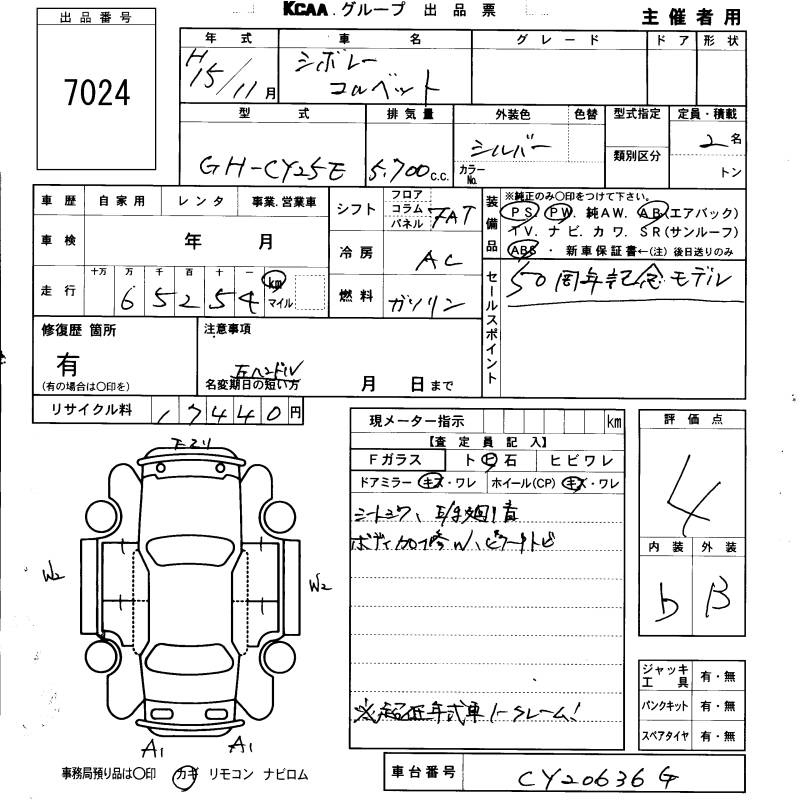 KCAA グループ 出品票
主催者用
出品番号
7024
年式 車名 グレード ドア 形状
H15/11月 シボレー コルベット
型式 排気量 外装色 色替 型式指定 定員・積載
GH-CY25E 5,700c.c. シルバー カラーNo. 類別区分 2名 トン
車歴 自家用 レンタ 事業.営業車
車検 年 月
走行 十万 万 千 百 十 一 km マイル
65254
シフト フロア コラム パネル 7AT
冷房 AC
燃料 ガソリン
装備品
※純正のみ〇印をつけて下さい。
PS. PW. 純AW. AB(エアバック)
TV. ナビ. カワ. SR(サンルーフ)
ABS ・ 新車保証書←(注) 後日送りのみ
セールスポイント
50周年記念モデル
修復歴 箇所
有
(有の場合は〇印を)
注意事項
左ハンドル
名変期日の短い方 月 日まで
リサイクル料 17440円
現メーター指示 km
【査定員記入】
Fガラス ト ビ 石 ヒビワレ
ドアミラー キズ・ワレ ホイール(CP) キズ・ワレ
ボディ
評価点
4
内装 外装
b B
W2
W2
A1 A1
ジャッキ工具 有・無
パンクキット 有・無
スペアタイヤ 有・無
事務局預り品は〇印 カギ リモコン ナビロム
車台番号 CY20636G